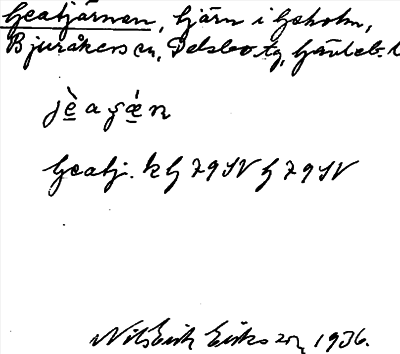 Geatjärnen, tjärn i Geholm,
Bjuråkers sn, Delsbo tg, Gävleb. l
Geatj. k G 79 SV G 79 SV
Nils Erik Eriksson 1936.